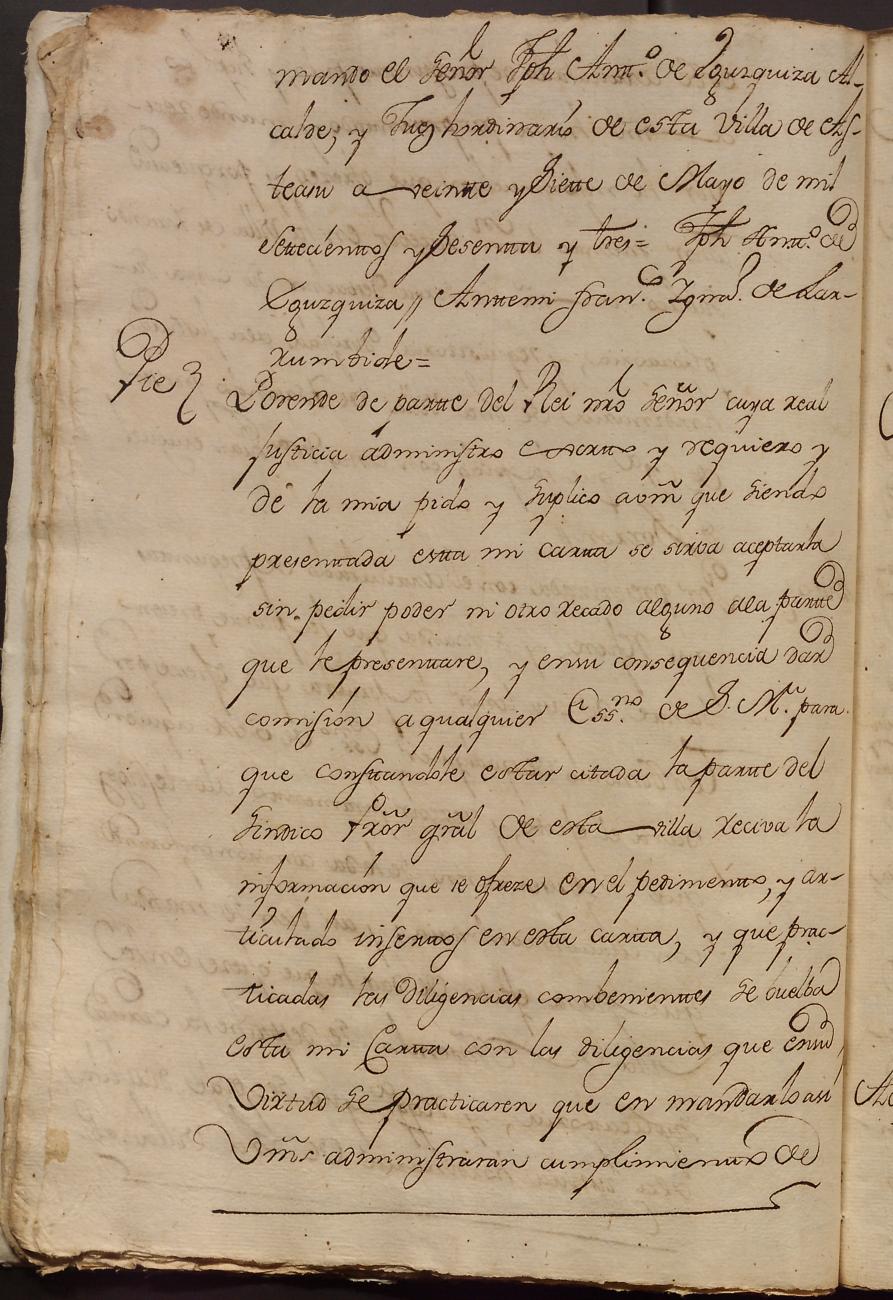 mando el Señor Jph Antt.º de Eguzquiza Al-
calde, y Juez hordinario de esta Villa de As-
teasu a veintte y Siette de Mayo de mil
Settecienttos y Sesentta y tres= Jph Antt.º de
Eguzquiza // Anttemi Fran.co Ignaº. de Lar-
rumbide=
Pie
Porende de partte del Rei nrõ Señor cuya real
justicia administro exorto y requiero y
dè la mia pido y Suplico a vm̃ que Siendo
presenttada estta mi cartta se sirva aceptarla
sin pedir poder ni otro recado alguno ala partte
que lepresenttare, y ensu consequencia dar
comisión a qualquier Essno. de S. M. para
que consttandole estar citada la partte del
Sindico Prõr grãl de esta villa reciva la
informacion que se ofreze en el pedimentto, y ar-
ticulado inserttos en esta cartta, y que prac-
ticadas las Diligencias combenienttes Se buelba
esta mi Cartta con las diligencias que ensu
Virtud Se practicaren que en mandarlo asi
Vm̃s administraran cumplimientto de